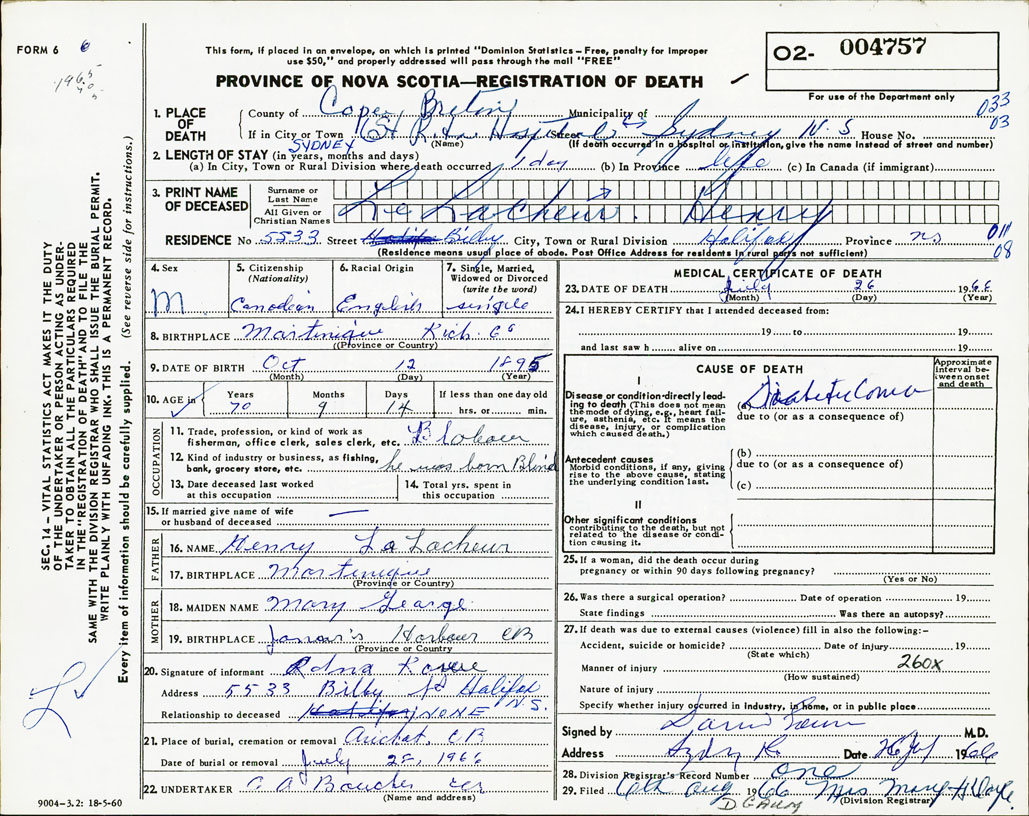 FORM 6 6
This form, if placed in an envelope, on which is printed "Dominion Statistics – Free, penalty for improper
use $50," and properly addressed will pass through the mail "FREE"
PROVINCE OF NOVA SCOTIA—REGISTRATION OF DEATH
O2- 004757
For use of the Department only
033
03
1. PLACE OF DEATH
County of Cape Breton Municipality of
If in City or Town St Rita Hospital Street Sydney N.S House No.
SYDNEY (Name) (If death occurred in a hospital or institution, give the name instead of street and number)
2. LENGTH OF STAY (in years, months and days)
(a) In City, Town or Rural Division where death occurred 1 day (b) In Province life (c) In Canada (if immigrant)
3. PRINT NAME OF DECEASED
Surname or Last Name
All Given or Christian Names
Le Lacheur. Henry
RESIDENCE No 5533 Street Bilby City, Town or Rural Division Halifax Province NS
011
08
(Residence means usual place of abode. Post Office Address for residents in rural parts not sufficient)
4. Sex M
5. Citizenship (Nationality) Canadian
6. Racial Origin English
7. Single, Married, Widowed or Divorced (write the word) single
8. BIRTHPLACE Martinique Rich. Co
(Province or Country)
9. DATE OF BIRTH Oct 12 1895
(Month) (Day) (Year)
10. AGE in Years 70 Months 9 Days 14 If less than one day old hrs. or min.
OCCUPATION
11. Trade, profession, or kind of work as fisherman, office clerk, sales clerk, etc.
12. Kind of industry or business, as fishing, bank, grocery store, etc. he was born Blind
13. Date deceased last worked at this occupation
14. Total yrs. spent in this occupation
15. If married give name of wife or husband of deceased —
FATHER
16. NAME Henry La Lacheur
17. BIRTHPLACE Martinique
(Province or Country)
MOTHER
18. MAIDEN NAME Mary George
19. BIRTHPLACE Harbour CB
(Province or Country)
20. Signature of informant Edna
Address 5533 Bilby St Halifax N.S.
Relationship to deceased NONE
21. Place of burial, cremation or removal Arichat, CB
Date of burial or removal July 28, 1966
22. UNDERTAKER C A Boucher
(Name and address)
MEDICAL CERTIFICATE OF DEATH
23. DATE OF DEATH July 26 1966
(Month) (Day) (Year)
24. I HEREBY CERTIFY that I attended deceased from:
19 to 19
and last saw h alive on 19
CAUSE OF DEATH
Approximate interval between onset and death
I
Disease or condition directly leading to death (This does not mean the mode of dying, e.g., heart failure, asthenia, etc. It means the disease, injury, or complication which caused death.)
(a) Diabetic Coma
due to (or as a consequence of)
Antecedent causes
Morbid conditions, if any, giving rise to the above cause, stating the underlying condition last.
(b)
due to (or as a consequence of)
(c)
II
Other significant conditions
contributing to the death, but not related to the disease or condition causing it.
25. If a woman, did the death occur during pregnancy or within 90 days following pregnancy?
(Yes or No)
26. Was there a surgical operation? Date of operation 19
State findings Was there an autopsy?
27. If death was due to external causes (violence) fill in also the following:–
Accident, suicide or homicide? Date of injury 19
(State which)
Manner of injury 260X
(How sustained)
Nature of injury
Specify whether injury occurred in industry, in home, or in public place
Signed by M.D.
Address Date 26 July 1966
28. Division Registrar's Record Number one
29. Filed 6th Aug 1966 Mrs Mary H Doyle
(Division Registrar)
SEC. 14 – VITAL STATISTICS ACT MAKES IT THE DUTY
OF THE UNDERTAKER OR PERSON ACTING AS UNDER-
TAKER TO OBTAIN ALL THE PARTICULARS REQUIRED
IN THE "REGISTRATION OF DEATH" AND TO FILE THE
SAME WITH THE DIVISION REGISTRAR WHO SHALL ISSUE THE BURIAL PERMIT.
WRITE PLAINLY WITH UNFADING INK. THIS IS A PERMANENT RECORD.
Every item of information should be carefully supplied. (See reverse side for instructions.)
9004–3.2: 18-5-60